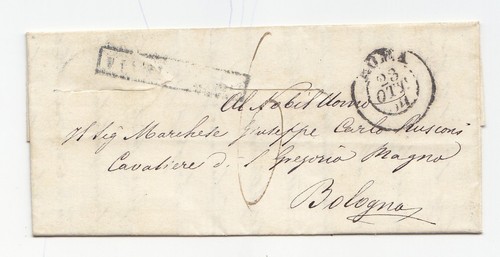 ROMA
23
OTT
Al Nobil Uomo
Il Sig Marchese Giuseppe Carlo Rusconi
Cavaliere di S Gregorio Magno
Bologna